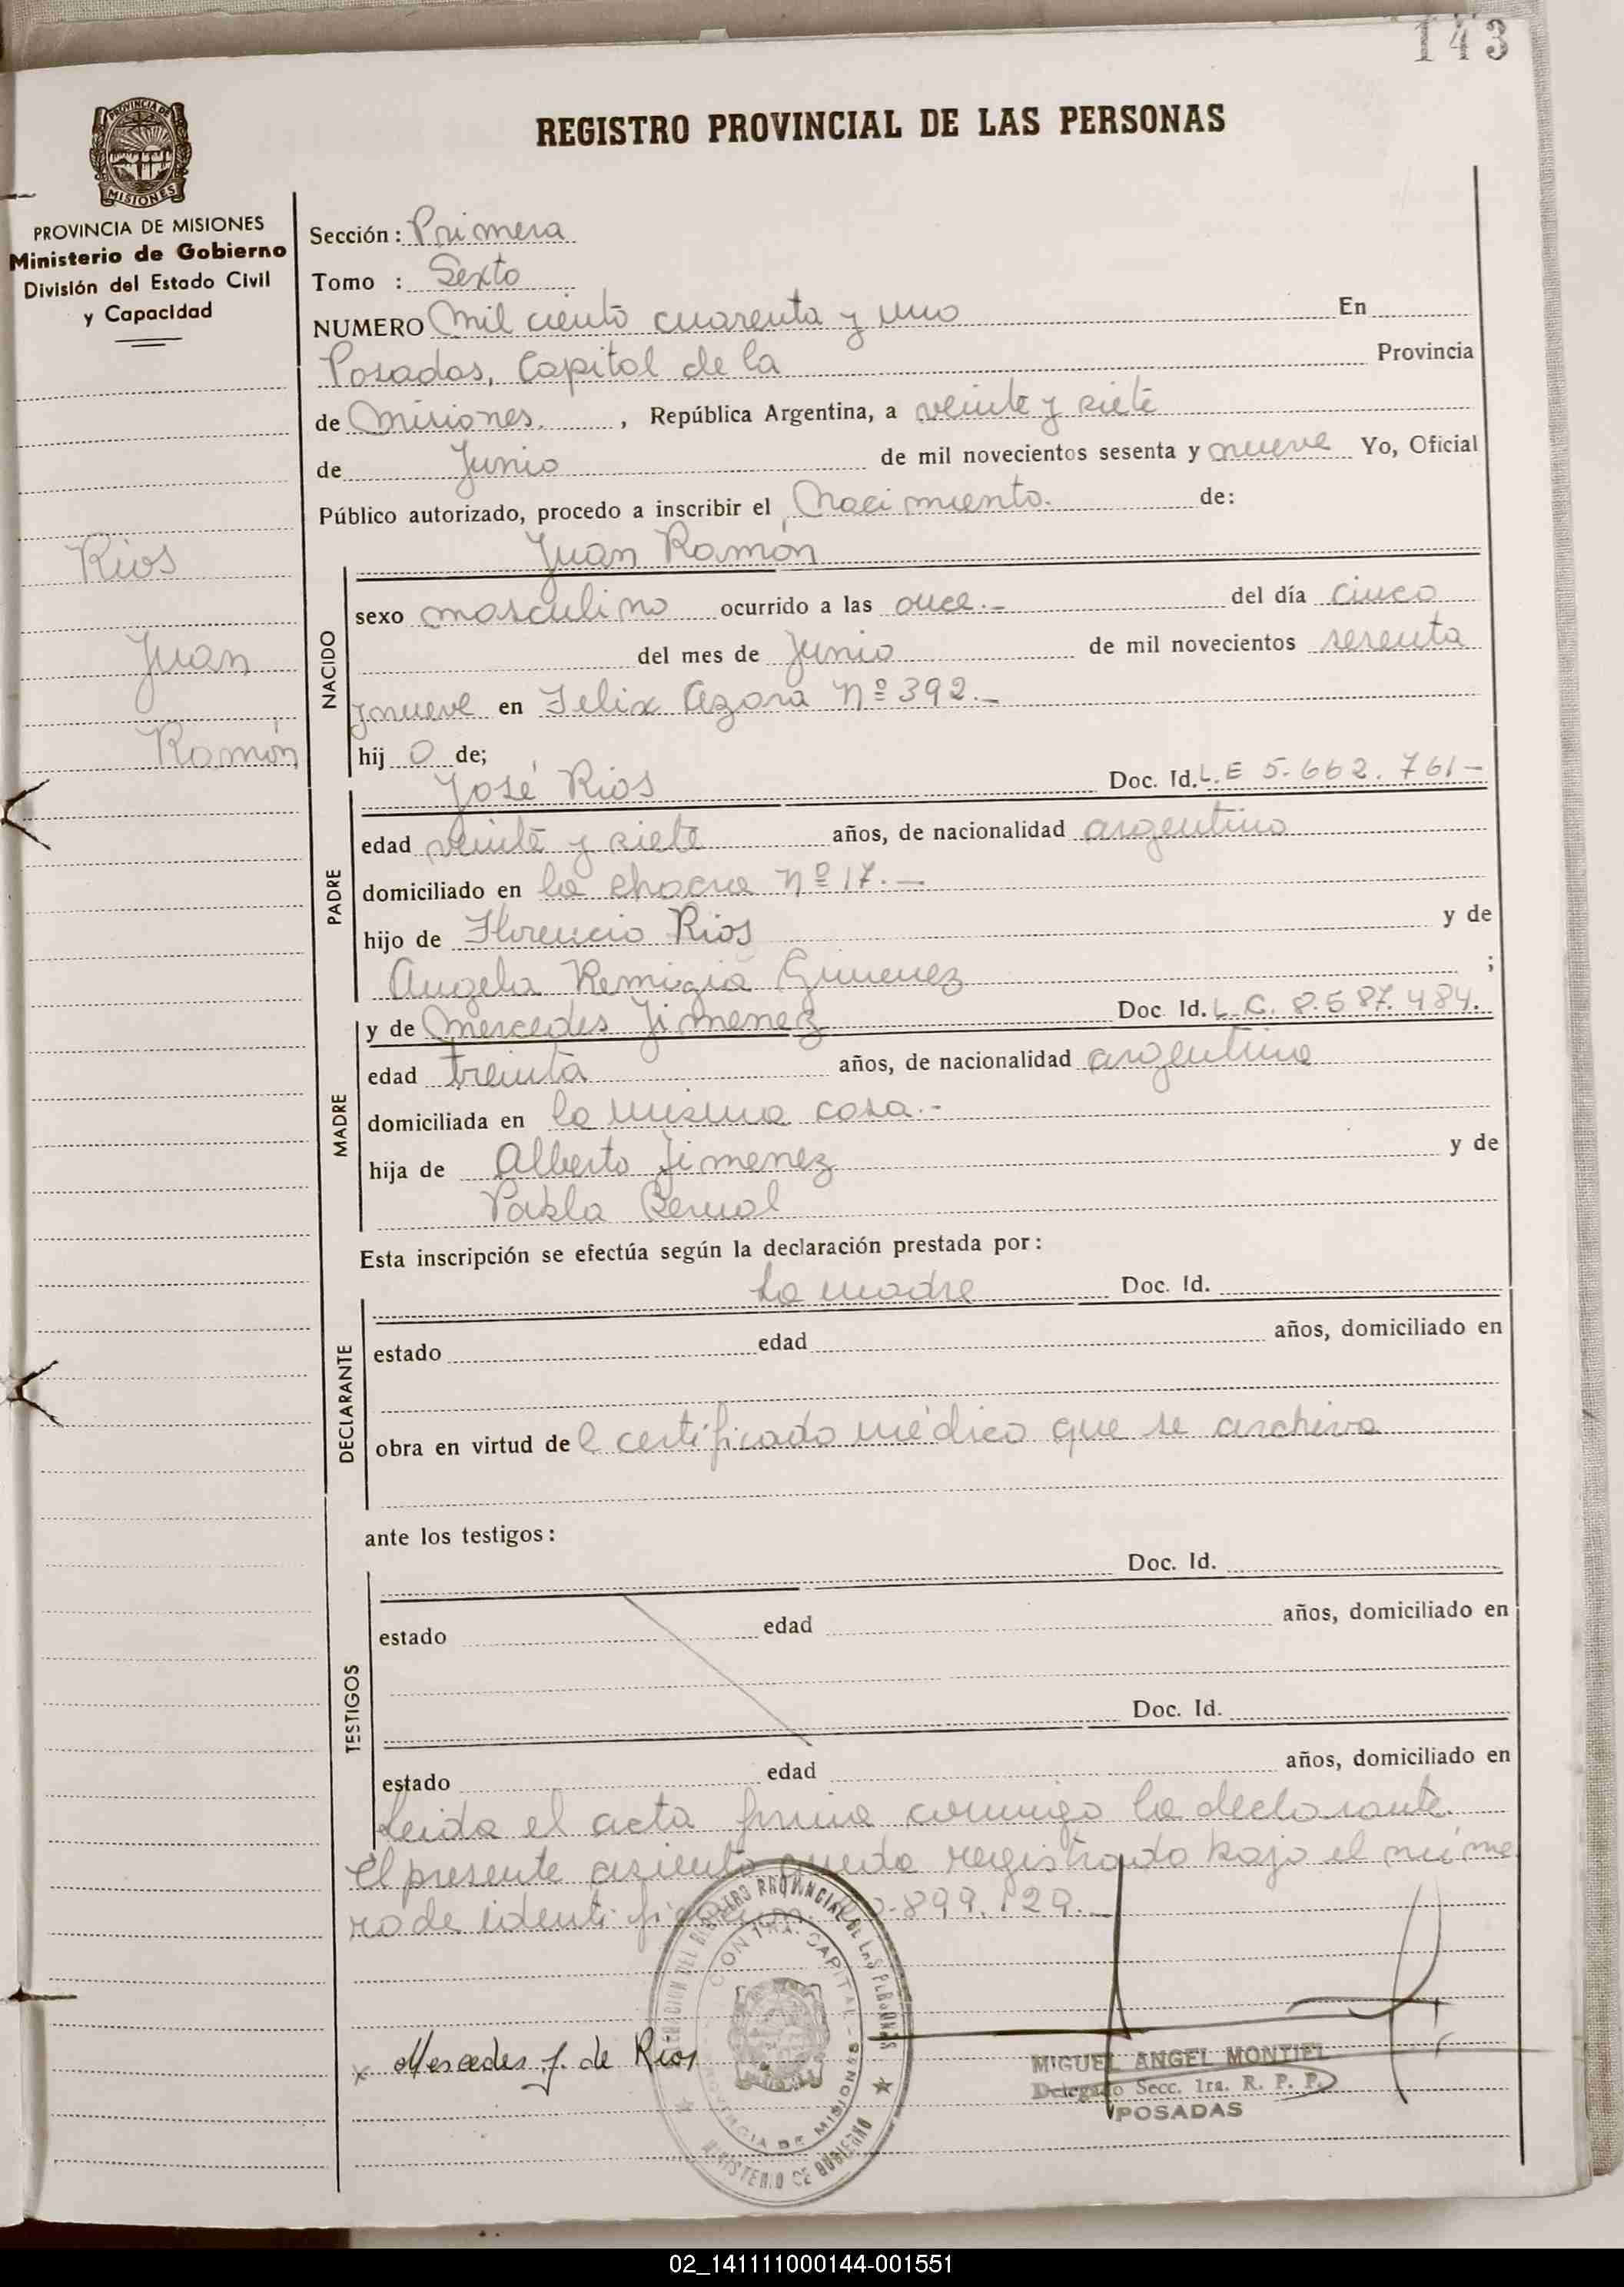 143
REGISTRO PROVINCIAL DE LAS PERSONAS
PROVINCIA DE MISIONES
MISIONES
PROVINCIA DE MISIONES
Ministerio de Gobierno
División del Estado Civil
y Capacidad
Rios
Juan
Ramón
Sección: Primera
Tomo : Sexto
NUMERO Mil ciento cuarenta y uno En
Posadas, Capital de la Provincia
de Misiones. , República Argentina, a veinte y siete
de Junio de mil novecientos sesenta y nueve Yo, Oficial
Público autorizado, procedo a inscribir el Nacimiento. de:
Juan Ramón
NACIDO
sexo masculino ocurrido a las once.- del día cinco
del mes de Junio de mil novecientos sesenta
y nueve en Felix Azara Nº 392.-
hij o de;
José Rios Doc. Id. L.E 5.662.761-
PADRE
edad veinte y siete años, de nacionalidad argentino
domiciliado en la chacra Nº 17.-
hijo de Florencio Rios y de
Angela Remigia Gimenez ;
y de Mercedes Jimenez Doc Id. L.C. 8.587.484.
MADRE
edad treinta años, de nacionalidad argentina
domiciliada en la misma casa.-
hija de Alberto Jimenez y de
Pabla Bernal
Esta inscripción se efectúa según la declaración prestada por:
La madre Doc. Id.
DECLARANTE
estado edad años, domiciliado en
obra en virtud de l certificado médico que se archiva
ante los testigos:
Doc. Id.
TESTIGOS
estado edad años, domiciliado en
Doc. Id.
estado edad años, domiciliado en
Leida el acta firma conmigo la declarante.
El presente asiento queda registrado bajo el núme
ro de identificación .899.129.-
Mercedes J. de Rios
REGISTRO PROVINCIAL DE LAS PERSONAS
CAPITAL
PROVINCIA DE MISIONES
MINISTERIO DE GOBIERNO
MIGUEL ANGEL MONTIEL
Delegado Secc. 1ra. R. P. P.
POSADAS
02_141111000144-001551